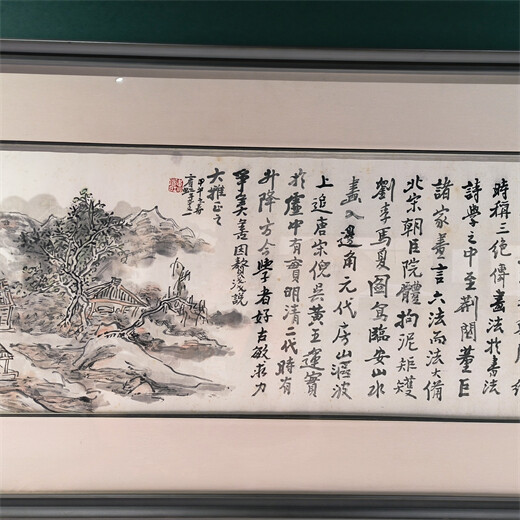 時稱三絶傳畫法於書法
詩學之中至荆關董巨
諸家畫言六法而法大備
北宋朝臣院體拘泥矩矱
劉李馬夏圖寫臨安山水
畫入邊角元代房山漚波
上追唐宋倪吳黃王運實
於虛中有實明清二代時有
升降方合學者好古敏求力
爭美善因贅泛說
大雅正之
甲午之春
賓虹